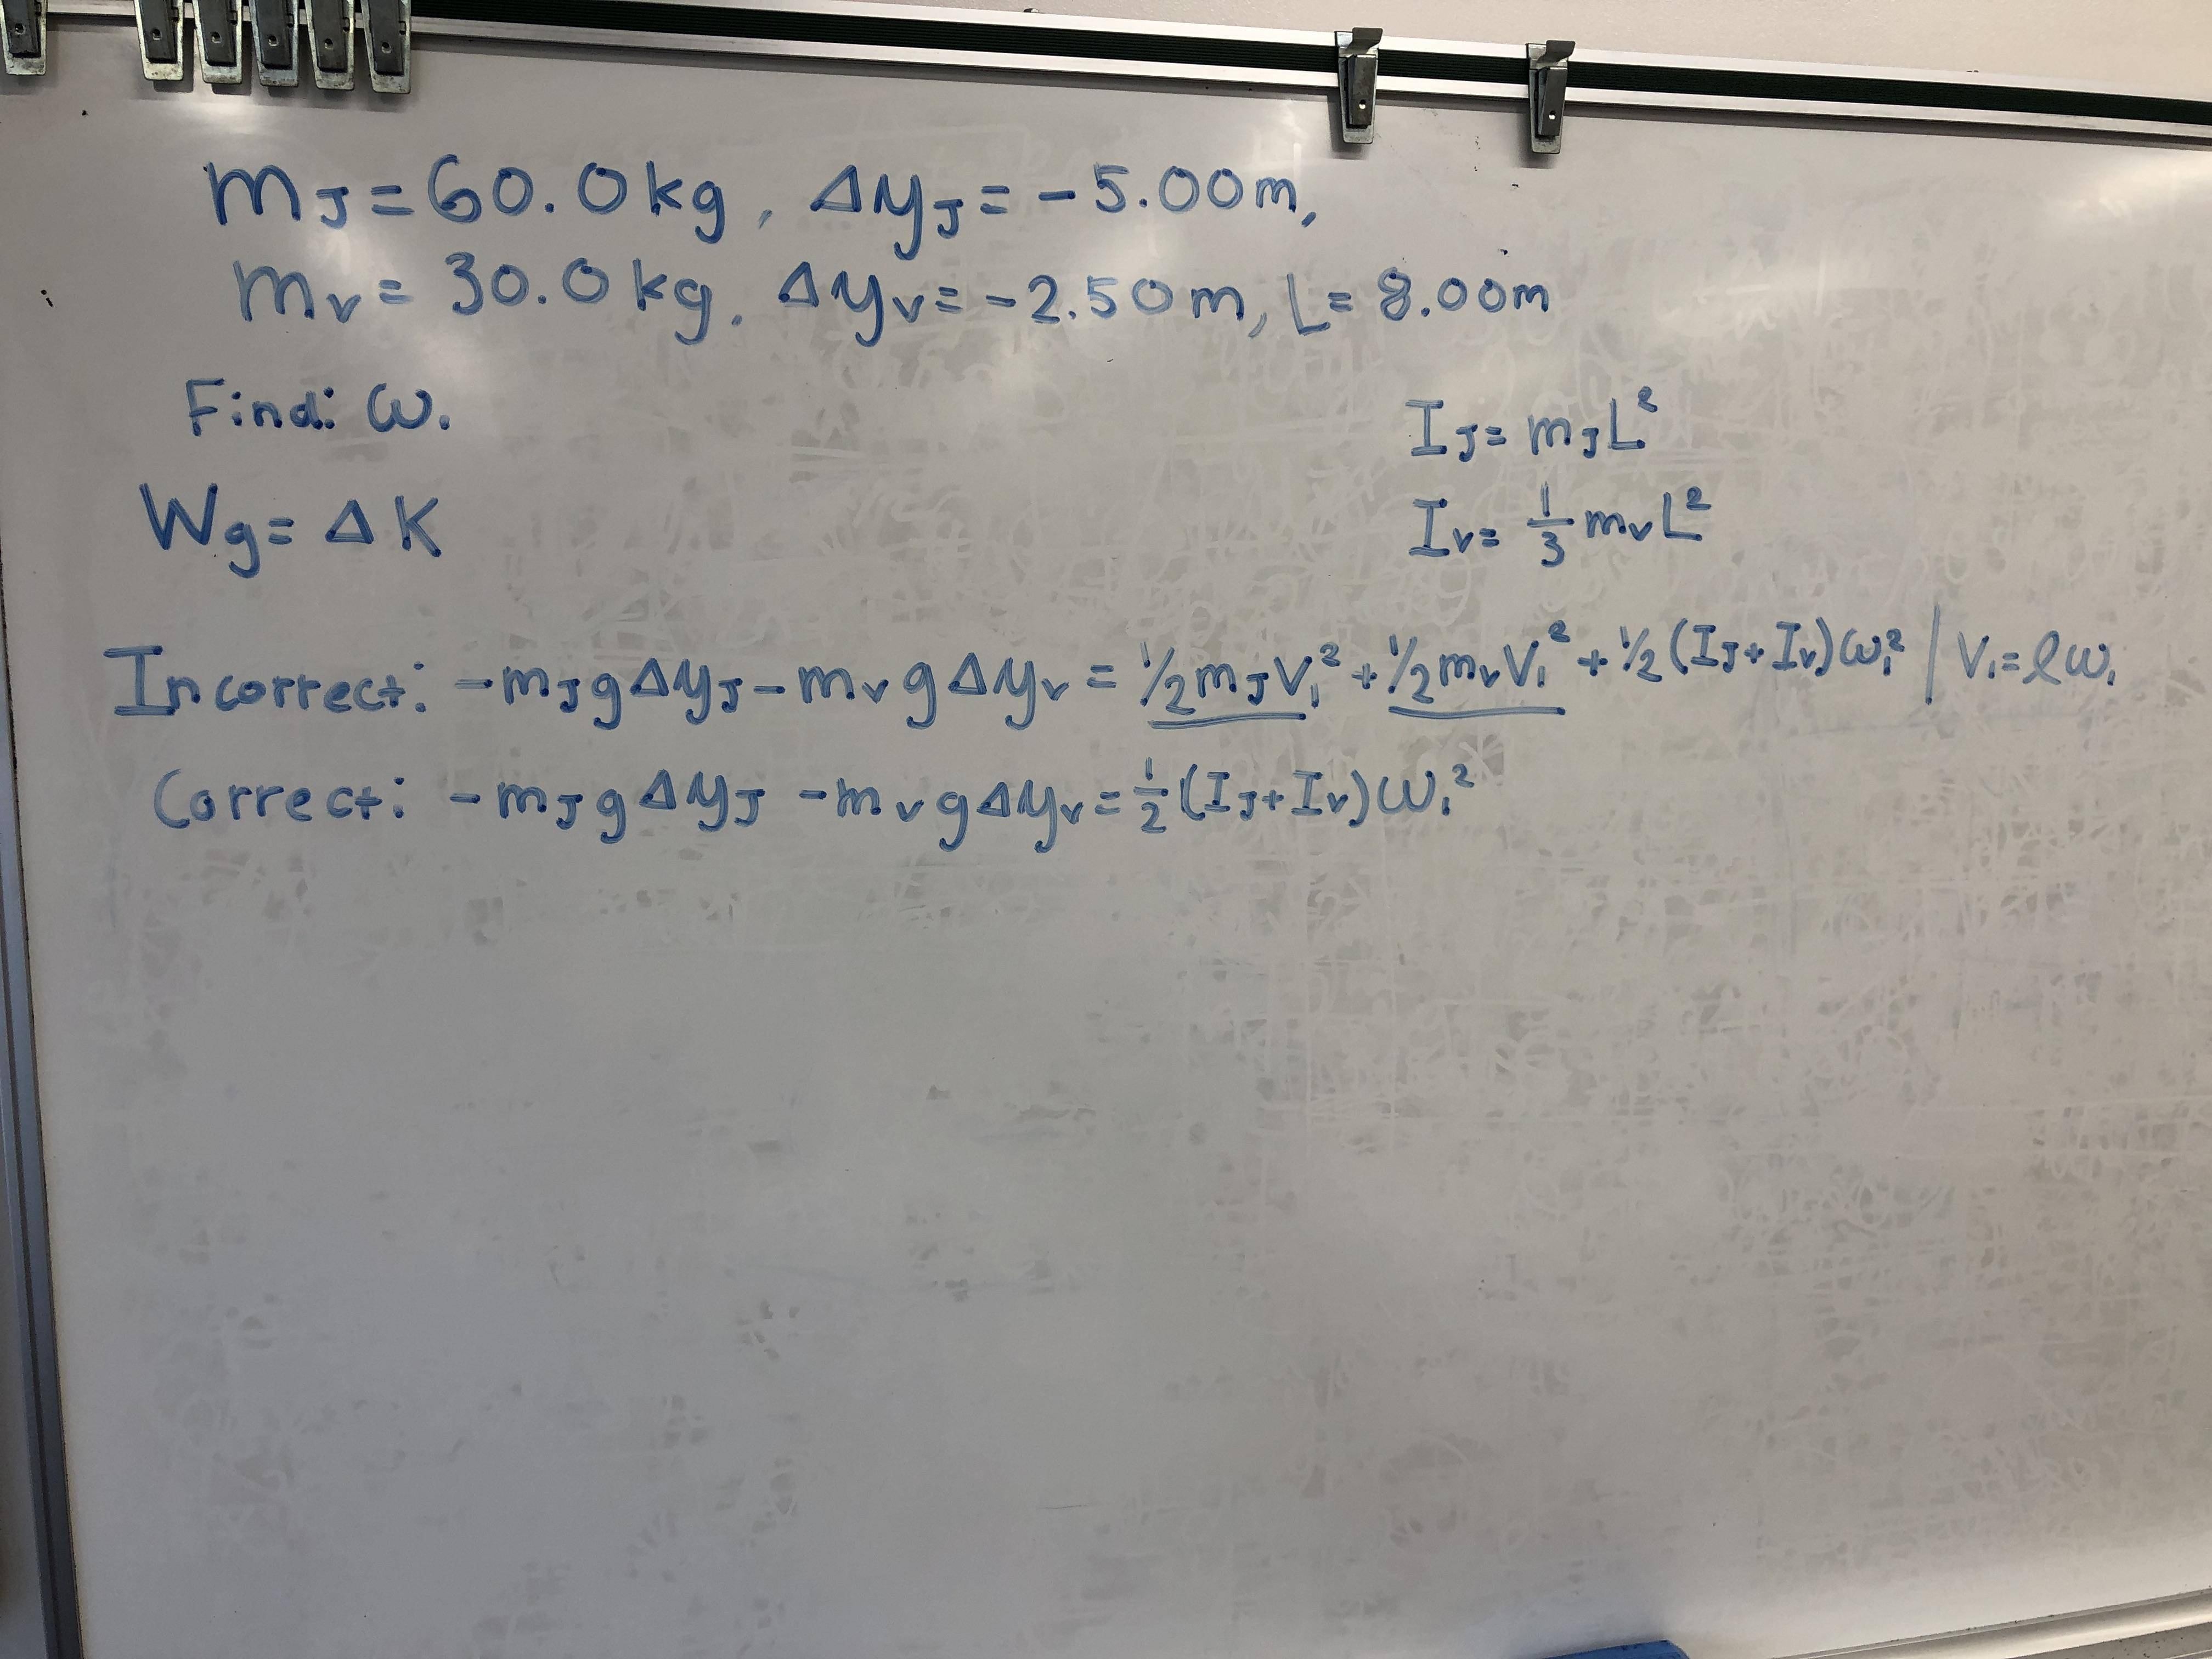 m_J = 60.0 kg, Δy_J = -5.00m,
m_v = 30.0 kg, Δy_v = -2.50 m, L = 8.00m
Find: ω.
I_J = m_J L²
W_g = Δ K
I_v = 1/3 m_v L²
Incorrect: -m_J g Δy_J - m_v g Δy_v = 1/2 m_J V₁² + 1/2 m_v V₁² + 1/2 (I_J + I_v) ω₁² / V₁ = ℓω₁
Correct: -m_J g Δy_J - m_v g Δy_v = 1/2 (I_J + I_v) ω₁²